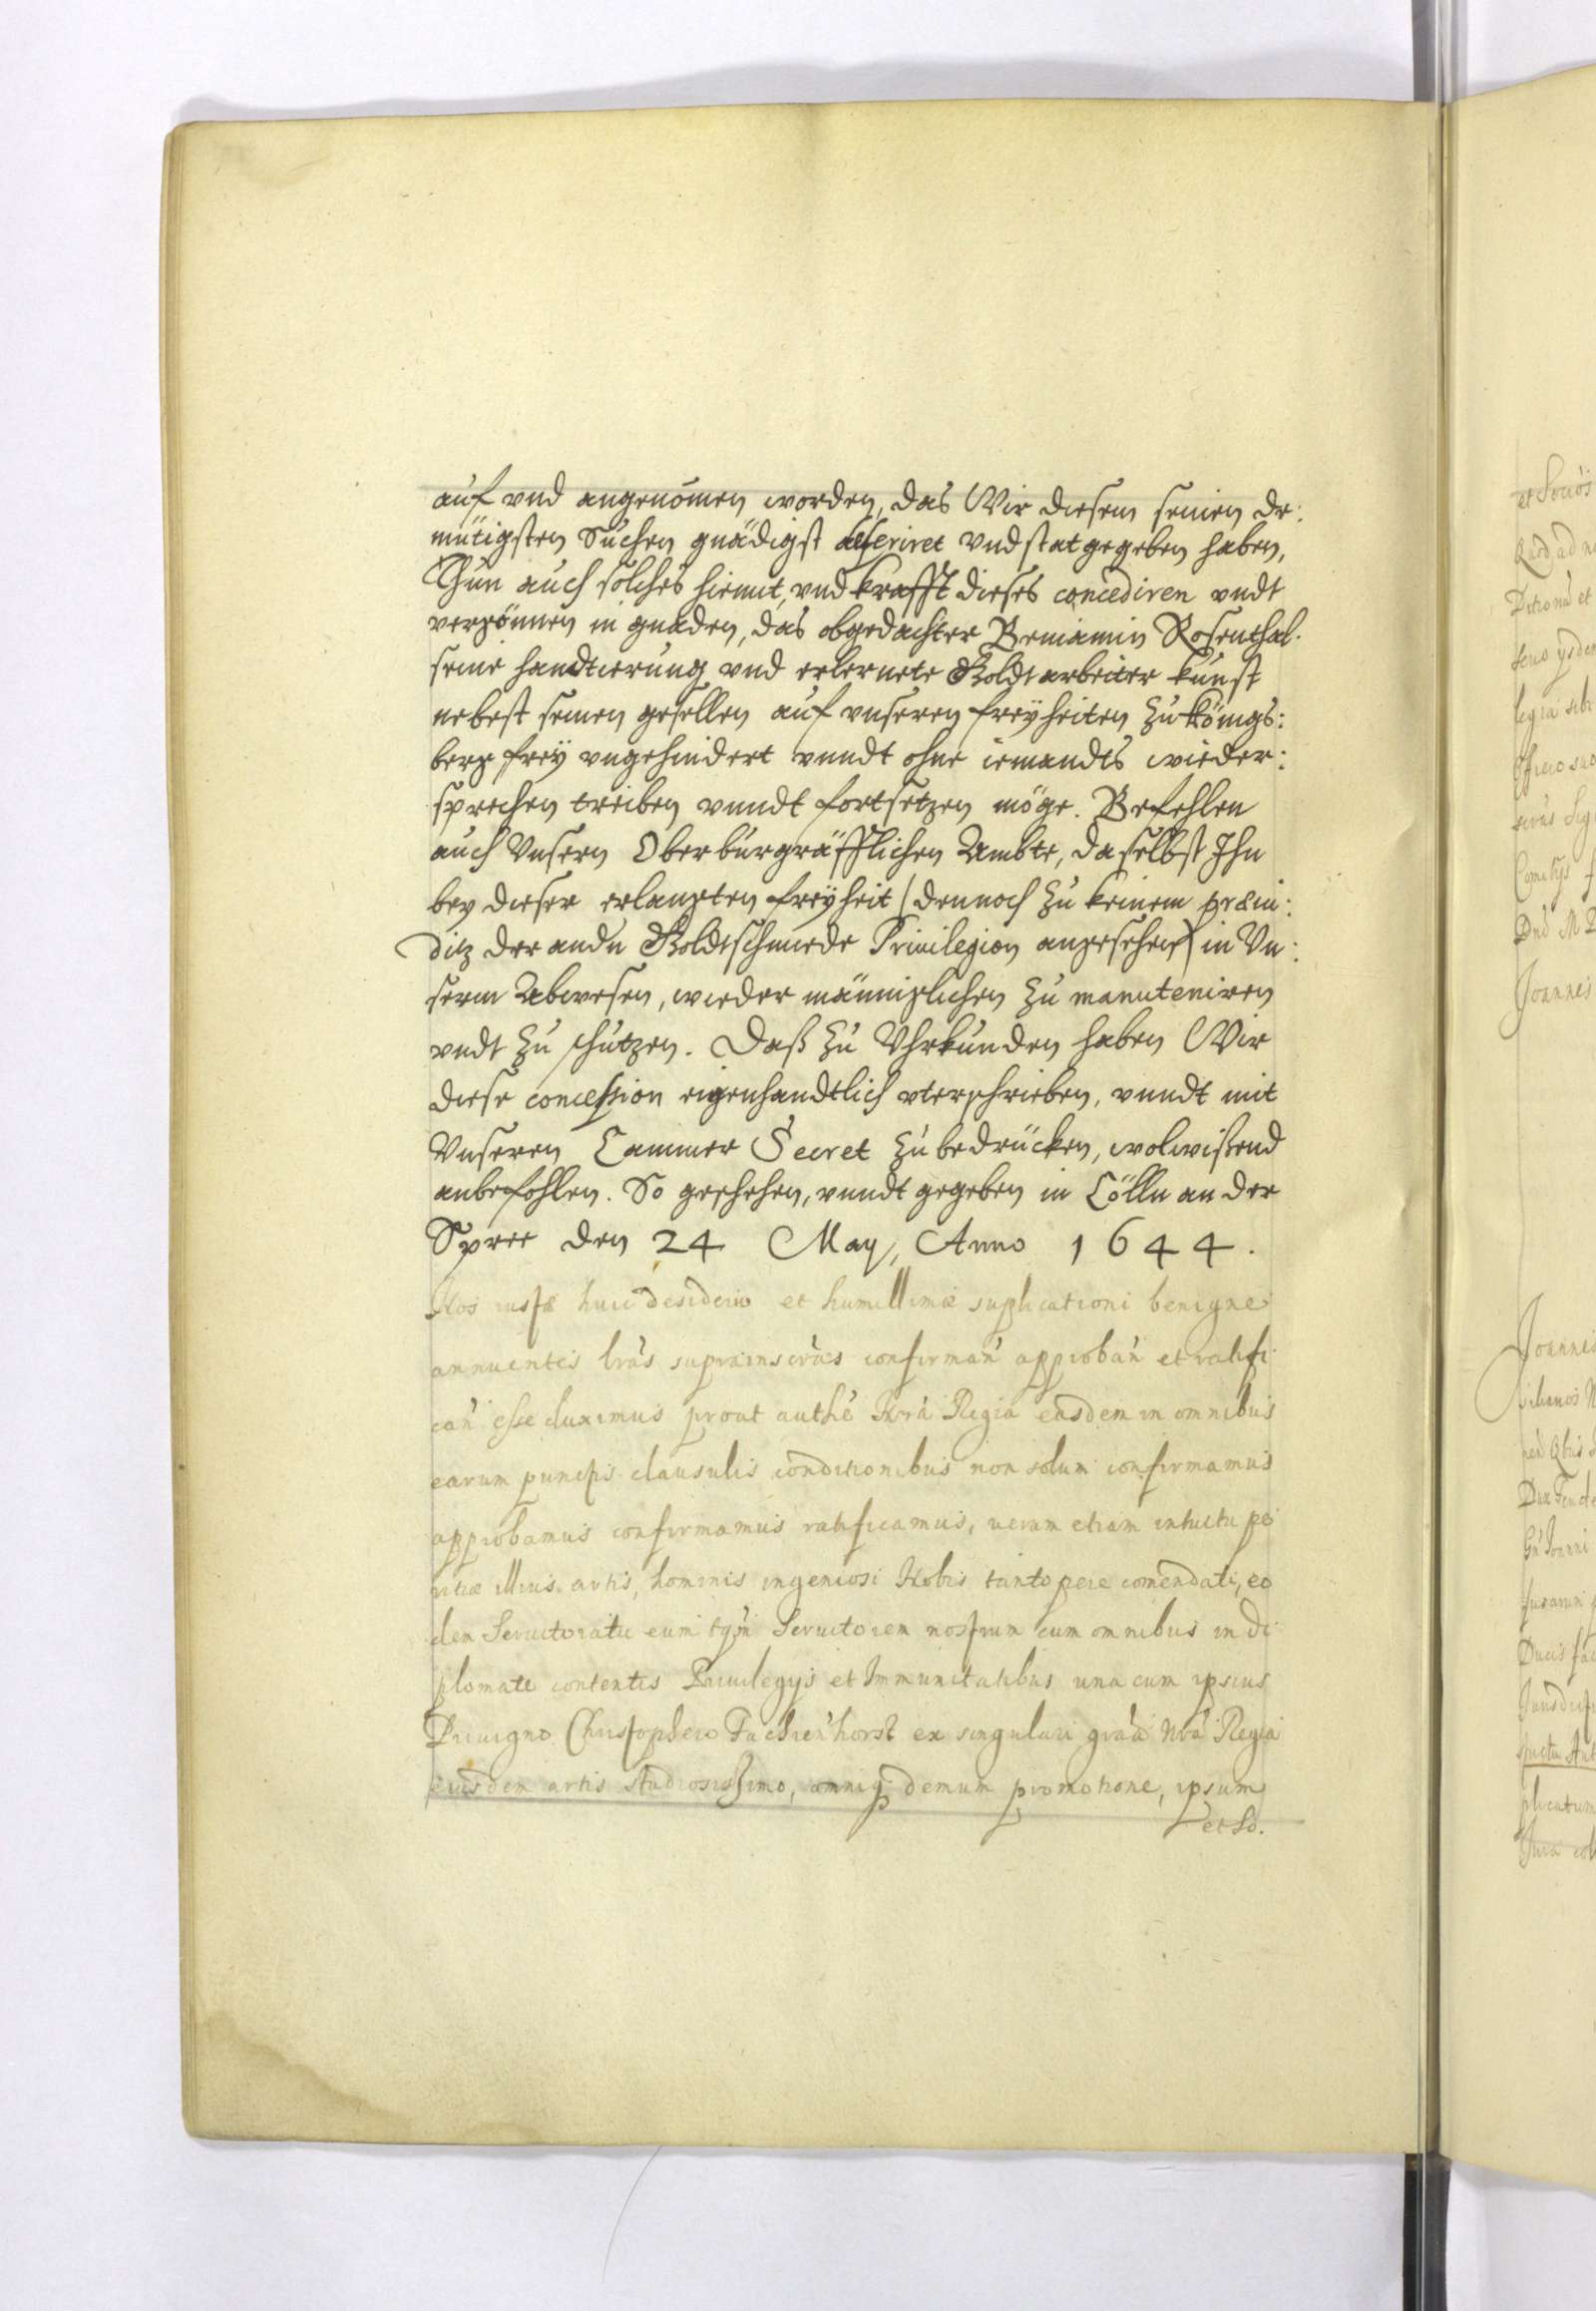 auf vnd angenomen worden, das Wir diesem seinen de:
mütigsten Suchen gnädigst deferiret vnd stat gegeben haben,
Thun auch solches hiemit, vnd krafft dieses concediren vndt
vergönnen in gnaden, das obgedachter Beniamin Rosenthal.
seine handtierung vnd erlernete Goldt arbeiter kunst
nebest seinen gesellen auf vnseren freÿheiten zu Königs:
berg freÿ vngehindert vnndt ohne iemandts wieder:
sprechen treiben vnndt fortsetzen möge. Befehlen
auch Vnsern Oberburgräfflichen Ambte, da selbst Ihn
bey dieser erlangten freÿheit (dennoch zu keinem præiu:
ditz der andn Goldtschmiede Priuilegion angesehen) in Vn:
serm Abwesen, wieder männiglichen zu manuteniren
vndt zu schützen. Daß zu Vhrkunden haben Wir
diese concession eigenhandtlich vterschrieben, vnndt mit
Vnseren Cammer Secret zu bedrücken, wolwißend
anbefohlen. So geschehen, vnndt gegeben in Cölln an der
Spree den 24 May, Anno 1644.
Nos iustæ huic desiderio et humillimæ suplicationi benigne
annuentes lras suprainsertas confirman approban et ratifi
can esse duximus prout authe Nra Regia easdem in omnibus
earum punctis clausulis conditionibus non solum confirmamus
approbamus confirmamus ratificamus, verum etiam intuitu pe
ritiæ illius artis, hominis ingeniosi Nobis tantopere comendati, eo
dem Seruitoratu eum tqm Seruitorem nostrum cum omnibus in di
plomate contentis Priuilegys et Immunitatibus una cum ipsius
Priuigno Christophero Fachrenhorst ex singulari gratia Nra Regia
eiusdem artis studiosissimo, omniq demum promotione, ipsum
et So.
et Socios
Quod ad
legia
Joannes
Joannes